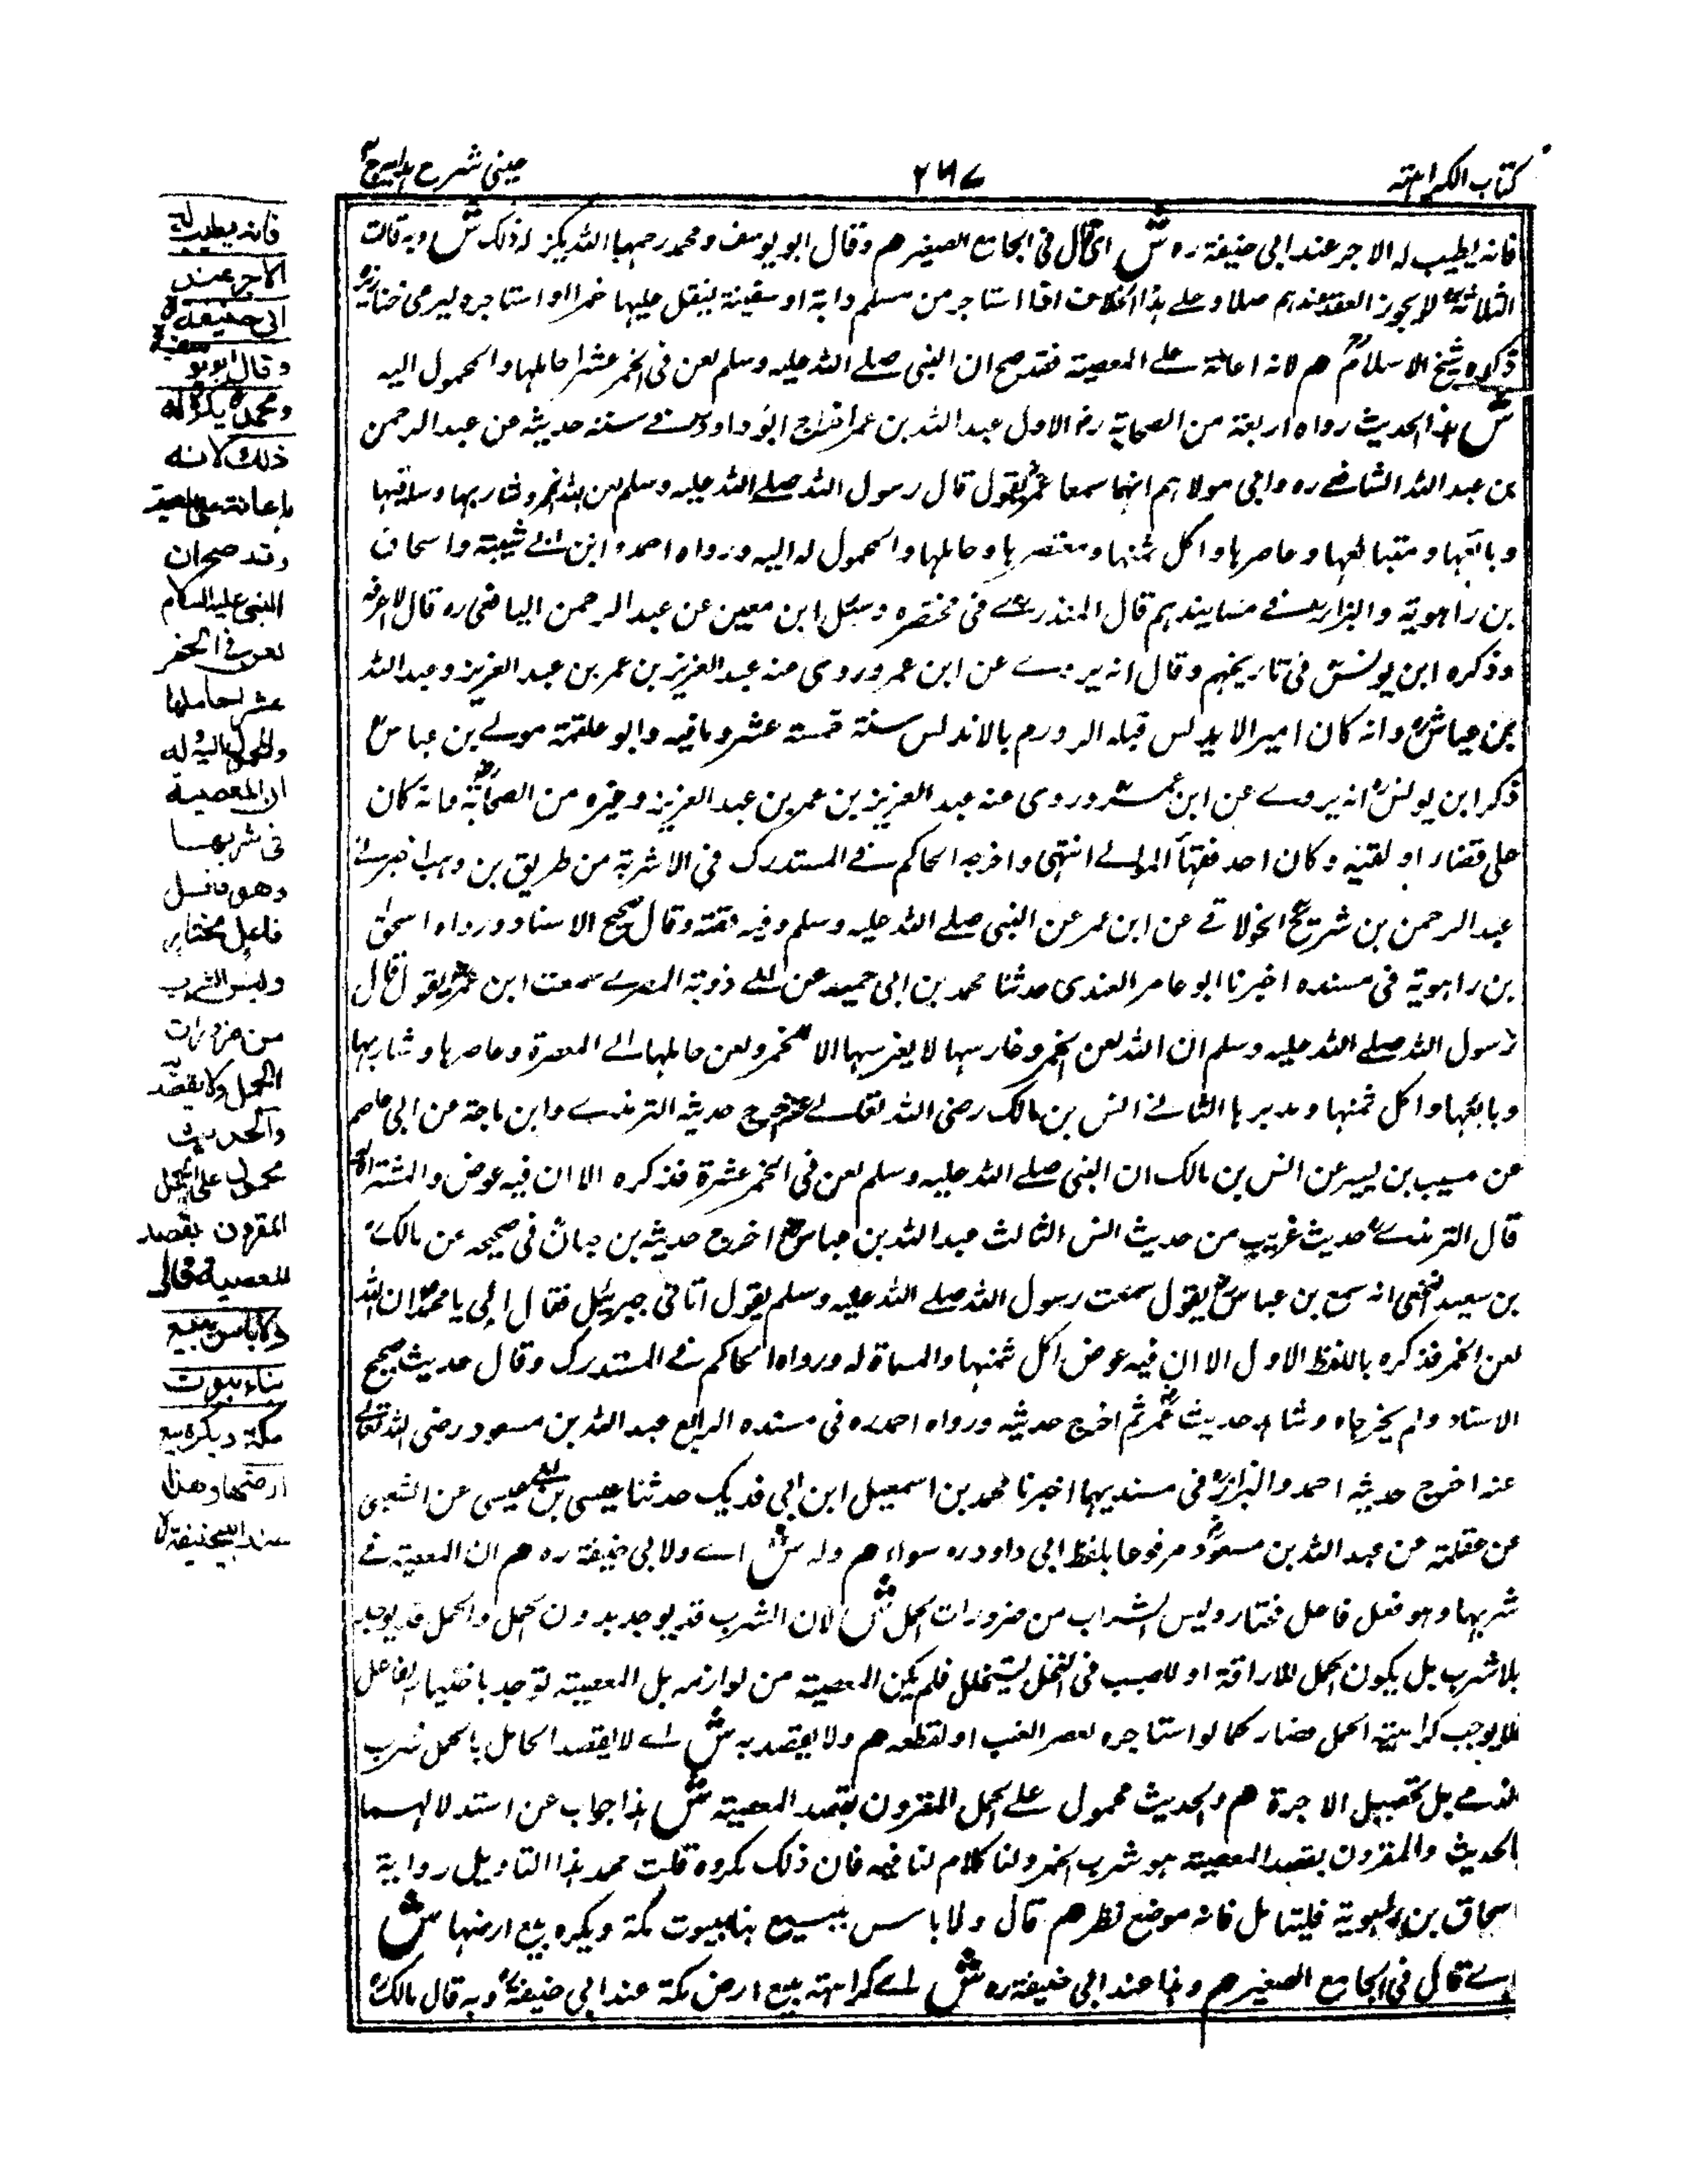 كتاب الكراهته
٢٦٧
عينى شرح هدايه ج ٤
فانه يطيب له الاجر عند ابى حنيفة ره ش اى قال فى الجامع الصغير هم وقال ابو يوسف ومحمد رحمهما الله يكره له ذلك ش وبه قالت
الثلاثة لا يجوز العقد عندهم صلا وعلے هذا الخلاف اذا استاجر من مسلم دابة او سفينة ينقل عليها خمرا او استاجره ليرعى خنازيره
ذكره شيخ الاسلام هم لانه اعانة علے المعصية فقد صح ان النبى صلے الله عليه وسلم لعن فى الخمر عشرا حاملها والمحمول اليه
ش هذا الحديث رواه اربعة من الصحابة رض الاول عبد الله بن عمر اخراج ابو داود فے سننه حديثه عن عبد الرحمن
بن عبد الله الشافعے ره وابى مولاهم انهما سمعا عمر يقول قال رسول الله صلے الله عليه وسلم لعن الله الخمر وشاربها وساقيها
وبائعها ومبتاعها وعاصرها واكل ثمنها ومعتصرها وحاملها والمحمول له اليه ورواه احمد وابن ابے شيبة واسحاق
بن راهوية والبزار فے مسانيدهم قال المنذرے فى مختصره وسئل ابن معين عن عبد الرحمن اليافعى ره قال لا اعرفه
وذكره ابن يونس فى تاريخهم وقال انه يروے عن ابن عمر وروى عنه عبد العزيز بن عمر بن عبد العزيز وعبد الله
بن عياش وانه كان امير الاندلس قبله الروم بالاندلس سنة خمسة عشر ومائيه وابو علقمة مولے بن عباس
ذكر ابن يونس انه يروے عن ابن عمر وروى عنه عبد العزيز بن عمر بن عبد العزيز وغيره من الصحابة وانه كان
على قضاء او لقيه وكان احد فقهاء الموالے انتهى واخرجه الحاكم فے المستدرك فى الاشربة من طريق بن وهب اخبرنے
عبد الرحمن بن شريح الخولانے عن ابن عمر عن النبى صلے الله عليه وسلم وفيه ثقة وقال صحيح الاسناد ورواه اسحٰق
بن راهوية فى مسنده اخبرنا ابو عامر العقدى حدثنا محمد بن ابى حميد عن ابے المصرے سمعت ابن عمر يقول قال
رسول الله صلے الله عليه وسلم ان الله لعن الخمر وغارسها لا يغرسها الا للخمر ولعن حاملها الے المعصرة وعاصرها وشاربها
وبائعها واكل ثمنها ومديرها الثانے انس بن مالك رضى الله تعالے عنه خرج حديثه الترمذے وابن ماجة عن ابى عاصم
عن مسيب بن يسير عن انس بن مالك ان النبى صلے الله عليه وسلم لعن فى الخمر عشرة فذكره الا ان فيه عوض والمشتراة
قال الترمذے حديث غريب من حديث انس الثالث عبد الله بن عباس اخرج حديثه بن حبان فى صحيحه عن مالك
بن سعيد انه سمع بن عباس يقول سمعت رسول الله صلے الله عليه وسلم يقول اتانى جبريئل فقال لى يا محمد ان الله
لعن الخمر فذكره باللفظ الاول الا ان فيه عوض اكل ثمنها والمسقاة له ورواه الحاكم فے المستدرك وقال حديث صحيح
الاسناد ولم يخرجاه وشاهد حديث عمر ثم اخرج حديثه ورواه احمد ره فى مسنده الرابع عبد الله بن مسعود رضى الله تعالے
عنه اخرج حديثه احمد والبزار فى مسنديهما اخبرنا محمد بن اسمعيل ابن ابى فديك حدثنا عيسى بن ابى عيسى عن الشعبى
عن علقمة عن عبد الله بن مسعود مرفوعا بلفظ ابى داود ره سواء هم وله ش اے ولابى حنيفة ره هم ان المعصية فے
شربها وهو فعل فاعل مختار وليس الشراب من ضرورات الحمل ش لان الشرب قد يوجد بدون الحمل والحمل قد يوجد
بلا شرب بل يكون الحمل للاراقة او للصب فى الخل ليتخلل فلم يكن المعصية من لوازمه بل المعصية توجد باختيار الفاعل
فلا يوجب كراهية الحمل فصار كما لو استاجره لعصر العنب او لقطعه هم ولا يقصد به ش اے لا يقصد الحامل بالحمل شرب
الذمے بل تحصيل الاجرة هم والحديث محمول علے الحمل المقرون بقصد المعصية ش هذا جواب عن استدلالهما
بالحديث والمقرون بقصد المعصية هو شرب الخمر ولنا كلام لنا فيه فان ذلك مكروه قلت محمد هذا التاويل رواية
اسحاق بن راهوية فليتامل فانه موضع نظر هم قال ولا باس ببيع بناء بيوت مكة ويكره بيع ارضها ش
اے قال فى الجامع الصغير هم وهذا عند ابى حنيفة ره ش اے كراهته بيع ارض مكة عند ابى حنيفة وبه قال مالك
فانه يطيب له
الاجر عند
ابى حنيفة
وقال ابو يوسف
ومحمد يكره له
ذلك لانه
اعانة على المعصية
وقد صح ان
النبى عليه السلام
لعن فى الخمر
عشرا حاملها
والمحمول اليه له
ان المعصية
فى شربها
وهو فعل
فاعل مختار
وليس الشرب
من ضرورات
الحمل ولا يقصد به
والحديث
محمول على الحمل
المقرون بقصد
المعصية قال
ولا باس ببيع
بناء بيوت
مكة ويكره بيع
ارضها وهذا
عند ابيحنيفة